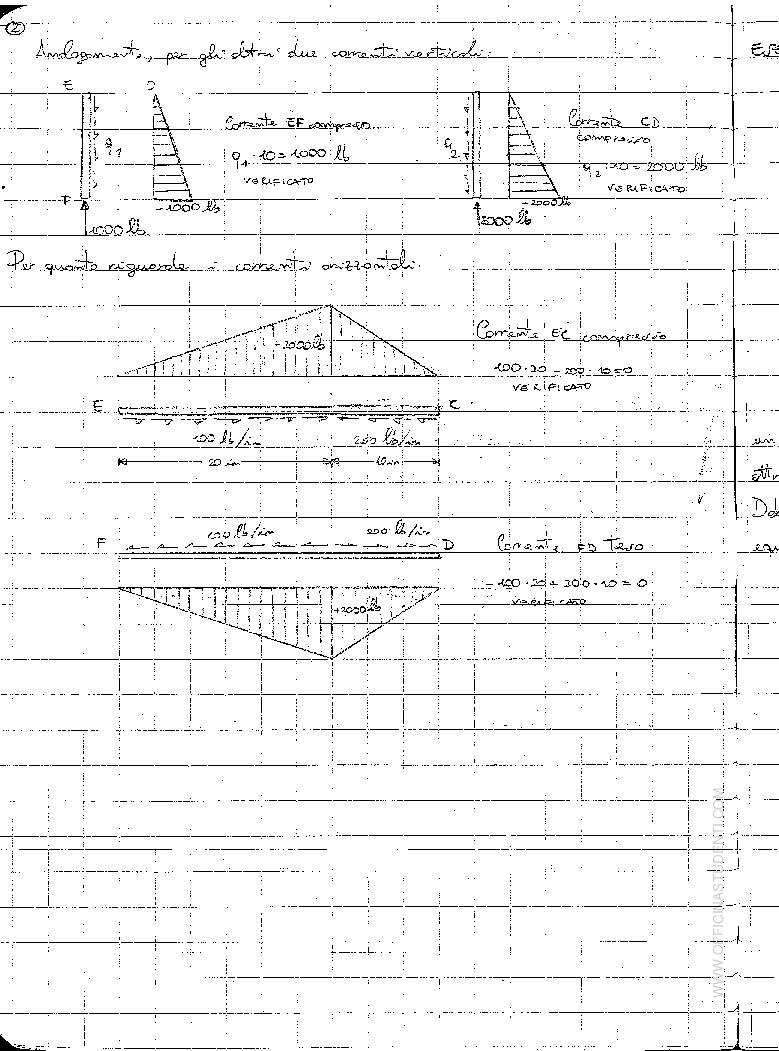 ②
Analogamente, per gli altri due correnti verticali.
E
Corrente EF compresso
q1 · 10 = 1000 lb
VERIFICATO
q1
F
-1000 lb
1000 lb
Corrente CD
compresso
q2 · 10 = 2000 lb
VERIFICATO
q2
-2000 lb
2000 lb
Per quanto riguarda i correnti orizzontali.
-2000 lb
Corrente EC compresso
100 · 20 - 200 · 10 = 0
VERIFICATO
E C
100 lb/in 200 lb/in
20 in 10 in
100 lb/in 200 lb/in
F D
Corrente FD Teso
- 100 · 20 + 200 · 10 = 0
VERIFICATO
+2000 lb
un
WWW.OFFICINASTUDENTI.COM